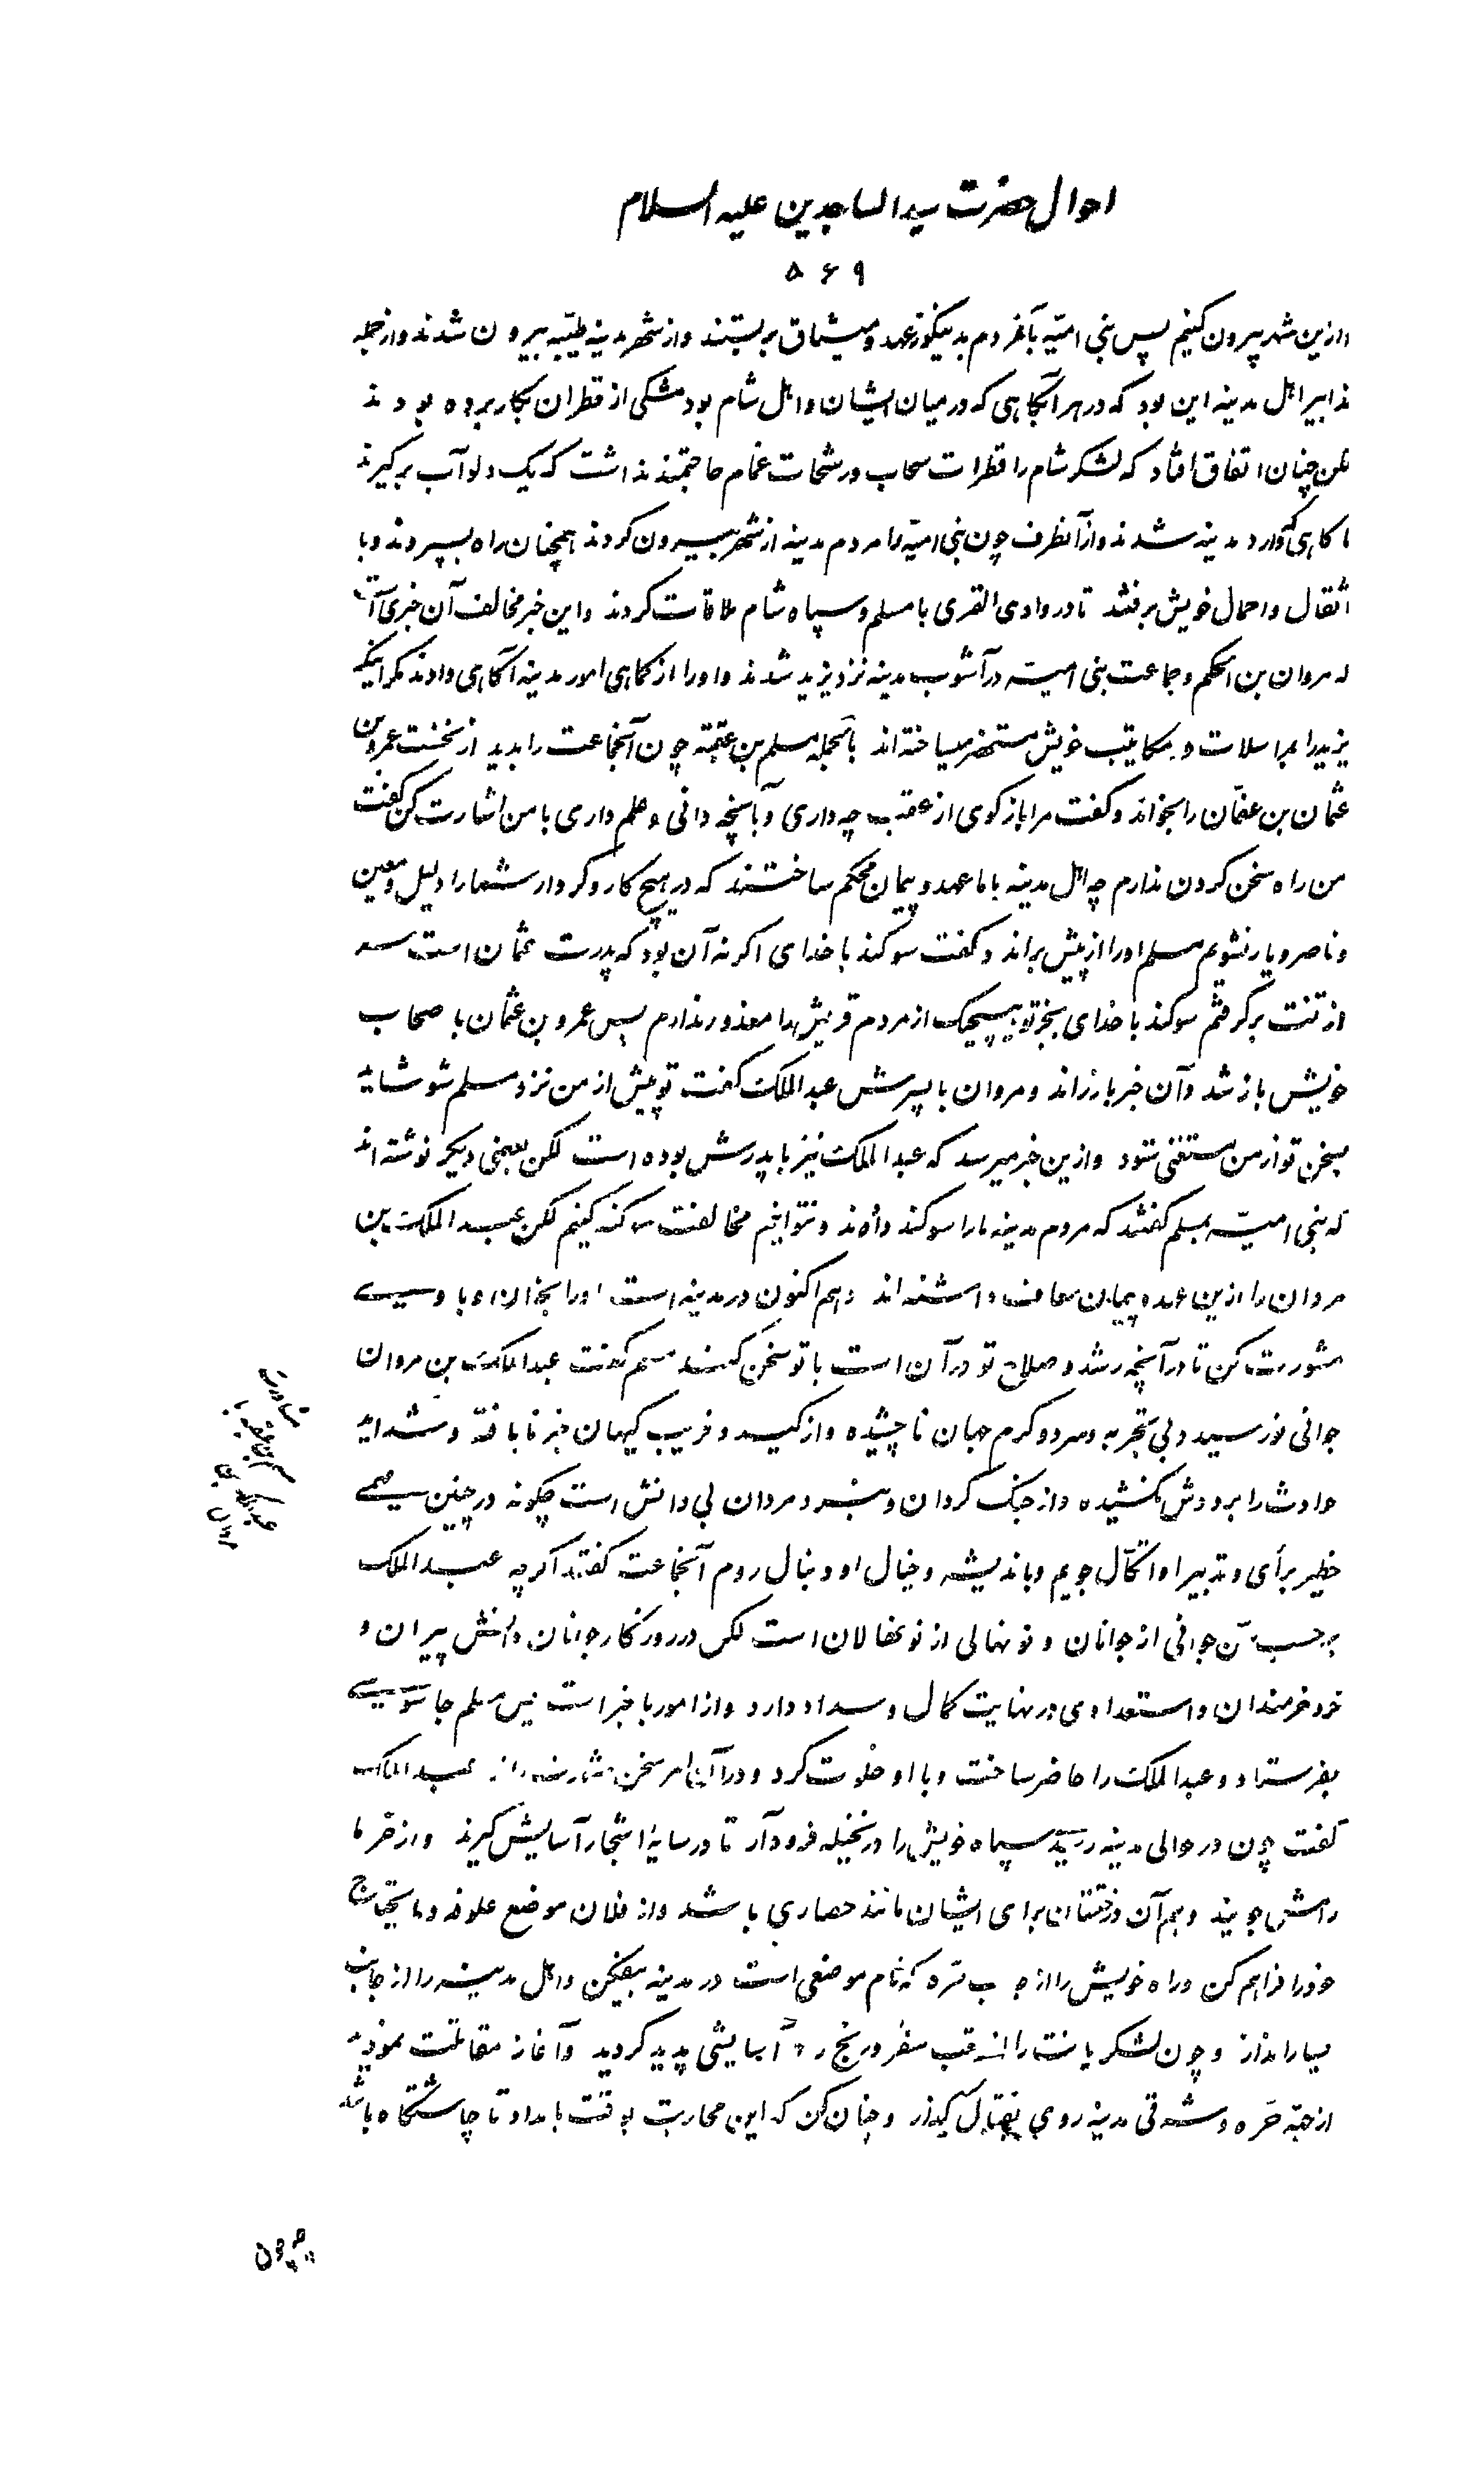 احوال حضرت سیدالساجدین علیه السلام
۵۶۹
ازین شهر بیرون کنیم پس بنی امیّه با مردم بدینگونه عهد و میثاق بربستند و از شهر مدینه طیّبه بیرون شدند و از جمله
تدابیر اهل مدینه این بود که در هر آبگاهی که در میان ایشان و اهل شام بود مشکی از قطران بکار برده بودند
لکن چنان اتفاق افتاد که لشکر شام را قطرات سحاب و رشحات غمام حاجتمند نداشت که یک دلو آب برگیرند
تا گاهی که وارد مدینه شدند و از آنطرف چون بنی امیّه را مردم مدینه از شهر بیرون کردند همچنان راه بسپردند و با
اثقال و احمال خویش برفتند تا در وادی القری با مسلم و سپاه شام ملاقات کردند و این خبر مخالف آن خبری است
که مروان بن الحکم و جماعت بنی امیه در آشوب مدینه نزد یزید شدند و او را از کماهی امور مدینه آگاهی دادند مگر اینکه
یزید را بمراسلات و مکاتیب خویش مستحضر میساخته‌اند بالجمله مسلم بن عقبه چون آنجماعت را بدید از نخست عمرو بن
عثمان بن عفّان را بخواند و گفت مرا باز گوی از عقب چه داری و بآنچه دانی و علم داری با من اشارت کن گفت
من راه سخن کردن ندارم چه اهل مدینه با ما عهد و پیمان محکم ساختند که در هیچ کار و کردار شما را دلیل و معین
و ناصر و یار نشویم مسلم او را از پیش براند و گفت سوگند با خدای اگر نه آن بود که پدرت عثمان است سر
از تنت برگرفتم سوگند با خدای بجز تو هیچیک از مردم قریش را معذور ندارم پس عمرو بن عثمان باصحاب
خویش باز شد و آن خبر باز راند و مروان با پسرش عبدالملک گفت تو پیش از من نزد مسلم شو شاید
بسخن تو از من مستغنی شود و ازین خبر میرسد که عبدالملک نیز با پدرش بوده است لکن بعضی دیگر نوشته‌اند
که بنی امیّه بمسلم گفتند که مردم مدینه ما را سوگند داده‌اند و نتوانیم مخالفت سوگند کنیم لکن عبدالملک بن
مروان را ازین عهد و پیمان معاف داشته‌اند و هم اکنون در مدینه است او را بخوان و با وی
مشورت کن تا در آنچه رشد و صلاح تو در آن است با تو سخن کند مسلم گفت عبدالملک بن مروان
جوانی نورسید و بی تجربه و سرد و گرم جهان ناچشیده و از کید و فریب کیهان خبر نایافته و شداید
حوادث را بر دوش نکشیده و از جنگ گردان و نبرد مردان بی دانش است چگونه در چنین مهمی
خطیر برأی و تدبیر او اتّکال جویم و باندیشه و خیال او دنبال روم آنجماعت گفتند اگرچه عبدالملک
برحسب سن جوانی از جوانان و نونهالی از نونهالان است لکن در روزگار جوانان دانش پیران و
خرد خردمندان و استعدادی در نهایت کمال و سداد دارد و از امور با خبر است پس مسلم جاسوسی
بفرستاد و عبدالملک را حاضر ساخت و با او خلوت کرد و در آن امر سخن بمشاورت راند عبدالملک
گفت چون در حوالی مدینه رسید سپاه خویش را در نخیله فرود آر تا در سایهٔ اشجار آسایش گیرند و از خرما
رامش جویند و هم آن درختان برای ایشان مانند حصاری باشد و از فلان موضع علوفه و مایحتاج
خود را فراهم کن و راه خویش را از جانب حرّه که نام موضعی است در مدینه بیفکن و اهل مدینه را از جانب
یسار انداز و چون لشکریانت را از تعب سفر و رنج راه آسایشی پدید گردید و آغاز مقاتلت نمودید
از جهة حرّه و شرقی مدینه روی بقتال گیدر و چنان کن که این محاربت بوقت بامداد تا چاشتگاه باشد
مشاورت
عبدالملک
چون